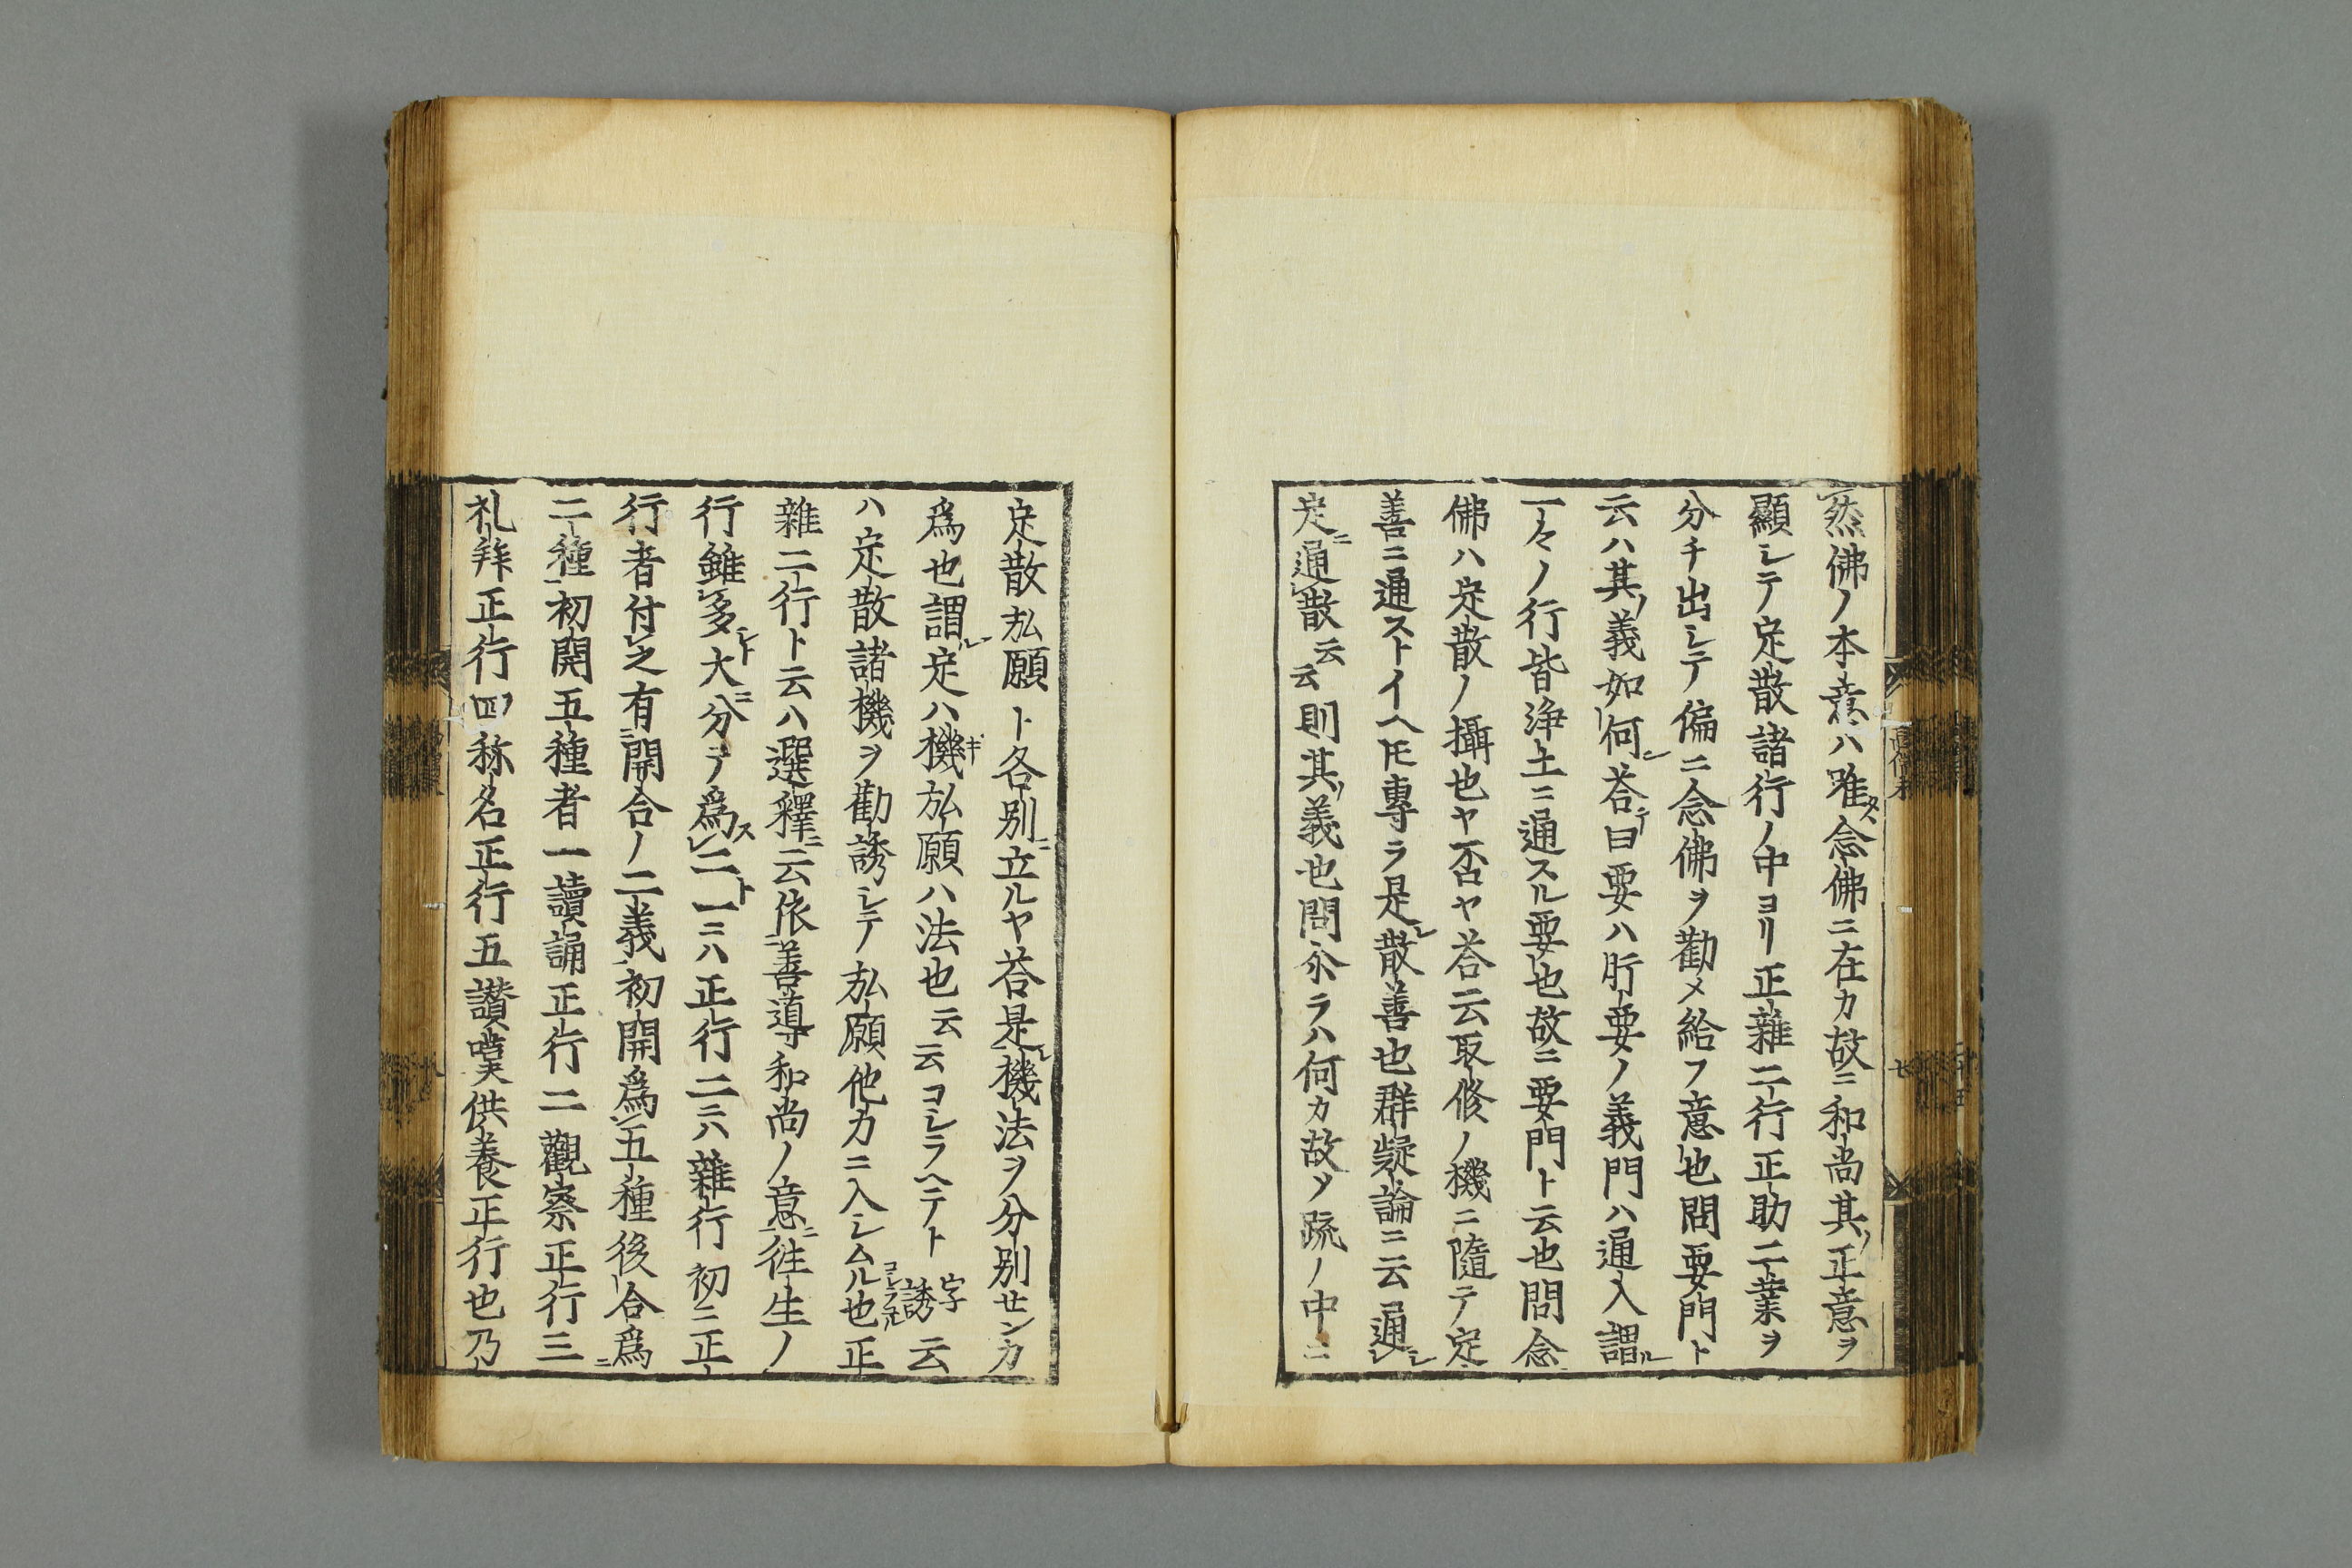 然佛ノ本意ハ唯タヽ念佛ニ在カ故ニ和尚其ノ正意ヲ
顯シテ定散諸行ノ中ヨリ正雜二行正助二業ヲ
分チ出シテ偏ニ念佛ヲ勸メ給フ意也問要門ト
云ハ其ノ義如何ン答テ曰要ハ肝要ノ義門ハ通入謂ル
一々ノ行皆浄土ニ通スル要也故ニ要門ト云也問念
佛ハ定散ノ攝也ヤ否ヤ答云取修ノ機ニ隨テ定
善ニ通ストイヘ𪜈專ラ是レ散善也群疑論ニ云通シ
定ニ通レ散云云則其ノ義也問尒ラハ何カ故ソ疏ノ中ニ
定散弘願ト各別ニ立ルヤ答是レ機法ヲ分別センカ
爲也謂ル定ハ機キ弘願ハ法也云云コシラヘテト誘字云
ハ定散諸機ヲ勸誘シテ弘願他力ニ入シムル也正
雜二行ト云ハ選釋ニ云依善導和尚ノ意ニ往生ノ
行雖レ多シト大ニ分テ爲スレ二ト一ニハ正行二ニハ雜行初ニ正
行者付レ之有開合ノ二義初開爲五種後合爲ニ
二種一初開五種者一讀誦正行二觀察正行三
礼拜正行四称名正行五讃嘆供養正行也乃